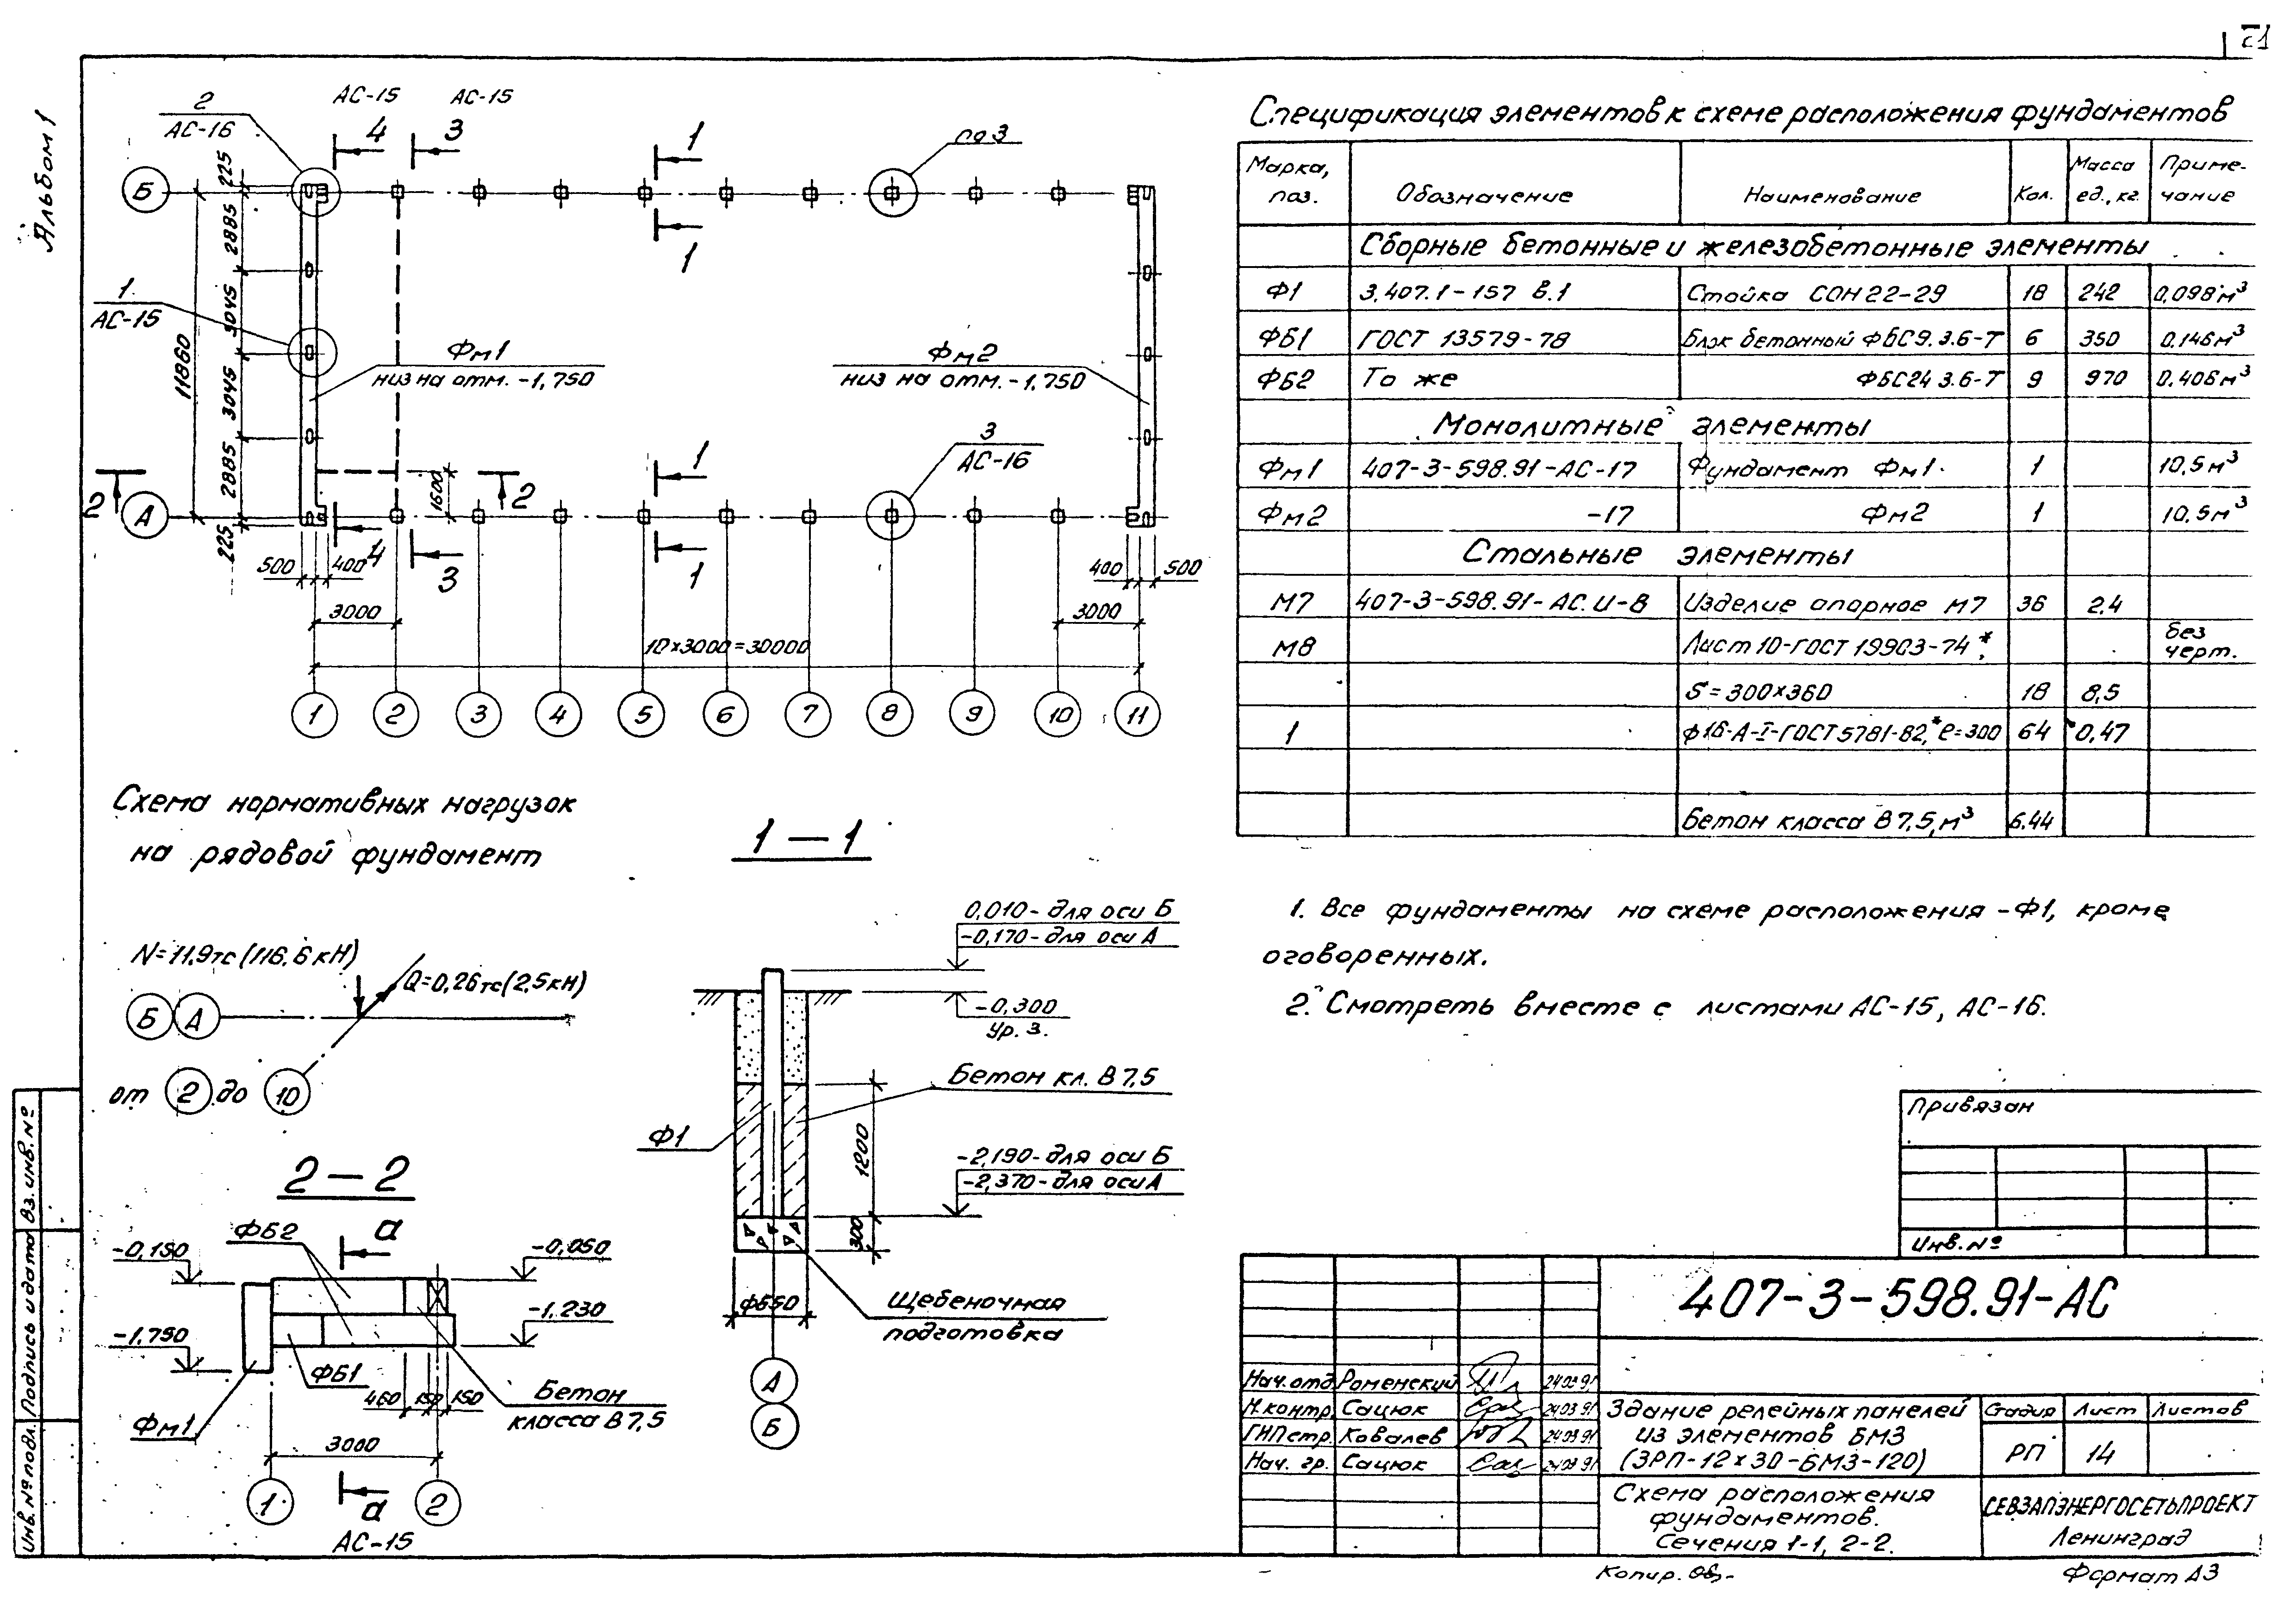 21
Альбом 1
2
АС-16
АС-15
АС-15
4
3
1
по 3
Б
225
2885
3045
3045
2885
225
11860
1
АС-15
1
Фм1
низ на отм. -1,750
Фм2
низ на отм. -1,750
3
АС-16
1
2
А
1600
2
4
3
1
500
400
400
500
3000
3000
10×3000=30000
1
2
3
4
5
6
7
8
9
10
11
Спецификация элементов к схеме расположения фундаментов
Марка, поз.
Обозначение
Наименование
Кол.
Масса ед., кг.
Приме-чание
Сборные бетонные и железобетонные элементы
Ф1 3.407.1-157 в.1 Стойка СОН 22-29 18 242 0,098м³
ФБ1 ГОСТ 13579-78 Блок бетонный ФБС9.3.6-Т 6 350 0.146м³
ФБ2 То же ФБС24 3.6-Т 9 970 0.406м³
Монолитные элементы
Фм1 407-3-598.91-АС-17 Фундамент Фм1 1 10,5м³
Фм2 -17 Фм2 1 10,5м³
Стальные элементы
М7 407-3-598.91-АС.И-8 Изделие опорное М7 36 2,4
М8 Лист 10-ГОСТ 19903-74*, без черт.
S=300×360 18 8,5
1 ф16-А-I-ГОСТ 5781-82,* ℓ=300 64 0,47
Бетон класса В7,5, м³ 6.44
Схема нормативных нагрузок
на рядовой фундамент
N=11,9тс(116,6кН)
Q=0,26тс(2,5кН)
Б А
от 2 до 10
1-1
0,010-для оси Б
-0,170-для оси А
-0,300
Ур. з.
Бетон кл. В7,5
Ф1
1200
-2,190-для оси Б
-2,370-для оси А
300
ф650
Щебеночная
подготовка
А
Б
2-2
а
ФБ2
-0,150
-0,050
-1,230
-1,750
ФБ1
460
150
150
Бетон
класса В7,5
Фм1
3000
1
а
2
АС-15
1. Все фундаменты на схеме расположения -Ф1, кроме
оговоренных.
2. Смотреть вместе с листами АС-15, АС-16.
Привязан
Инв. №
407-3-598.91-АС
Нач. отд. Роменский 24.03.91
Н.контр. Сацюк 24.03.91
ГИПстр. Ковалев 24.03.91
Нач. гр. Сацюк 24.03.91
Здание релейных панелей
из элементов БМЗ
(ЗРП-12×30-БМЗ-120)
Стадия Лист Листов
РП 14
Схема расположения
фундаментов.
Сечения 1-1, 2-2.
СЕВЗАПЭНЕРГОСЕТЬПРОЕКТ
Ленинград
Копир.
Формат А3
Инв. № подл. Подпись и дата Вз. инв. №